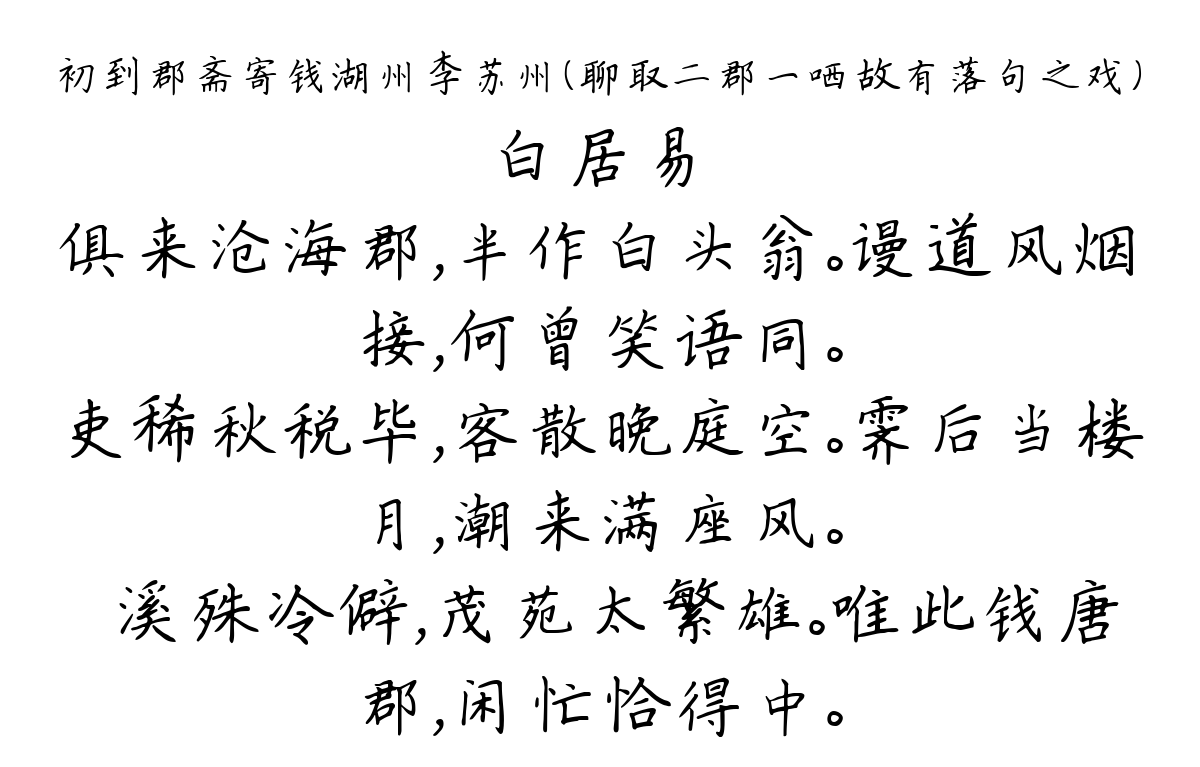 初到郡斋寄钱湖州李苏州(聊取二郡一哂故有落句之戏)
白居易
俱来沧海郡,半作白头翁。谩道风烟
接,何曾笑语同。
吏稀秋税毕,客散晚庭空。霁后当楼
月,潮来满座风。
溪殊冷僻,茂苑太繁雄。唯此钱唐
郡,闲忙恰得中。